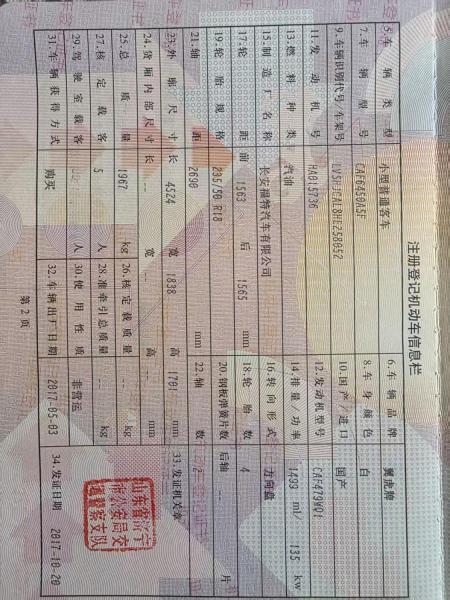 注册登记机动车信息栏
5.车辆类型 小型普通客车 6.车辆品牌 翼虎牌
7.车辆型号 CAF6450A5F 8.车身颜色 白
9.车辆识别代号/车架号 LVSHJCAL8HE258052 10.国产/进口 国产
11.发动机号 HA015736 12.发动机型号 CAF479WQ1
13.燃料种类 汽油 14.排量/功率 1499 ml/ 135 kw
15.制造厂名称 长安福特汽车有限公司 16.转向形式 方向盘
17.轮距 前 1563 后 1565 mm 18.轮胎数 4
19.轮胎规格 235/50 R18 20.钢板弹簧片数 后轴 --- 片
21.轴距 2690 mm 22.轴数 2
23.外廓尺寸 长 4524 宽 1838 高 1701 mm 33.发证机关章
24.货厢内部尺寸 长 --- 宽 --- 高 --- mm
25.总质量 1967 kg 26.核定载质量 --- kg
27.核定载客 5 人 28.准牵引总质量 --- kg
29.驾驶室载客 --- 人 30.使用性质 非营运
31.车辆获得方式 购买 32.车辆出厂日期 2017-05-03
山东省济宁
市公安局交
通警察支队
34.发证日期 2017-10-20
第 2 页